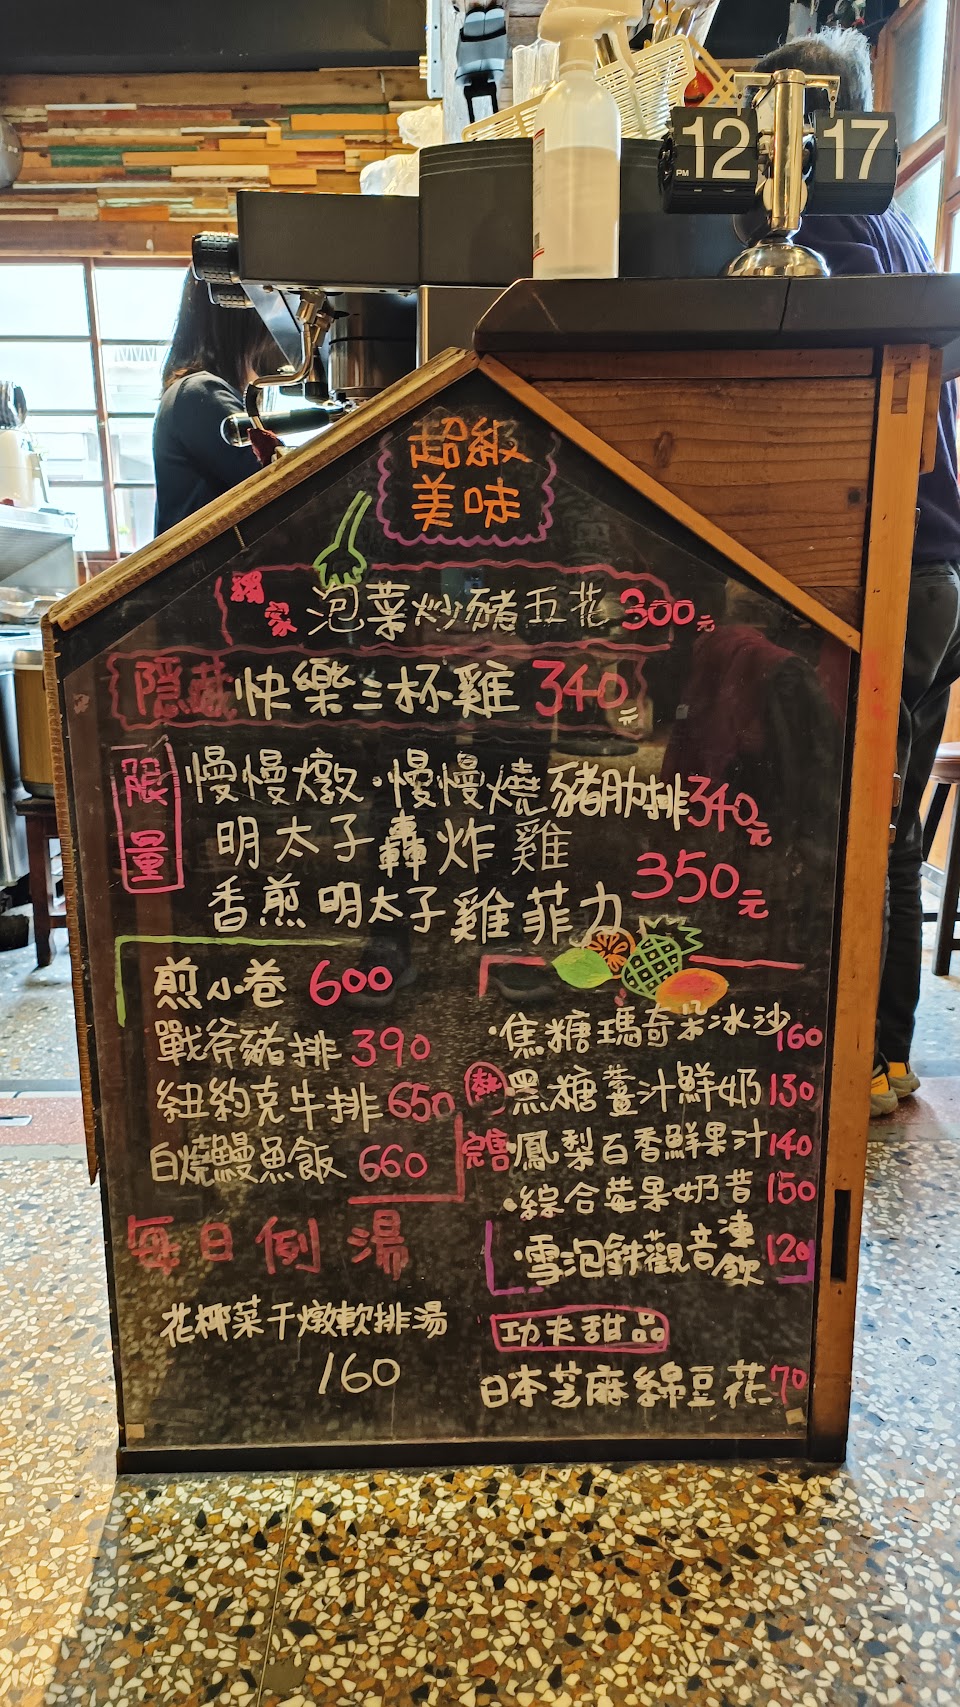 PM 12 17
超級
美味
獨家 泡菜炒豬五花 300元
隱藏 快樂三杯雞 340元
限量 慢慢燉·慢慢燒豬肋排 340元
明太子轟炸雞
香煎明太子雞菲力 350元
煎小卷 600
戰斧豬排 390
紐約克牛排 650
白燒鰻魚飯 660
每日例湯
花椰菜干燉軟排湯
160
·焦糖瑪奇朵冰沙 160
熱 黑糖薑汁鮮奶 130
完售 鳳梨百香鮮果汁 140
·綜合莓果奶昔 150
·雪泡鉄觀音凍飲 120
功夫甜品
日本芝麻綿豆花 70